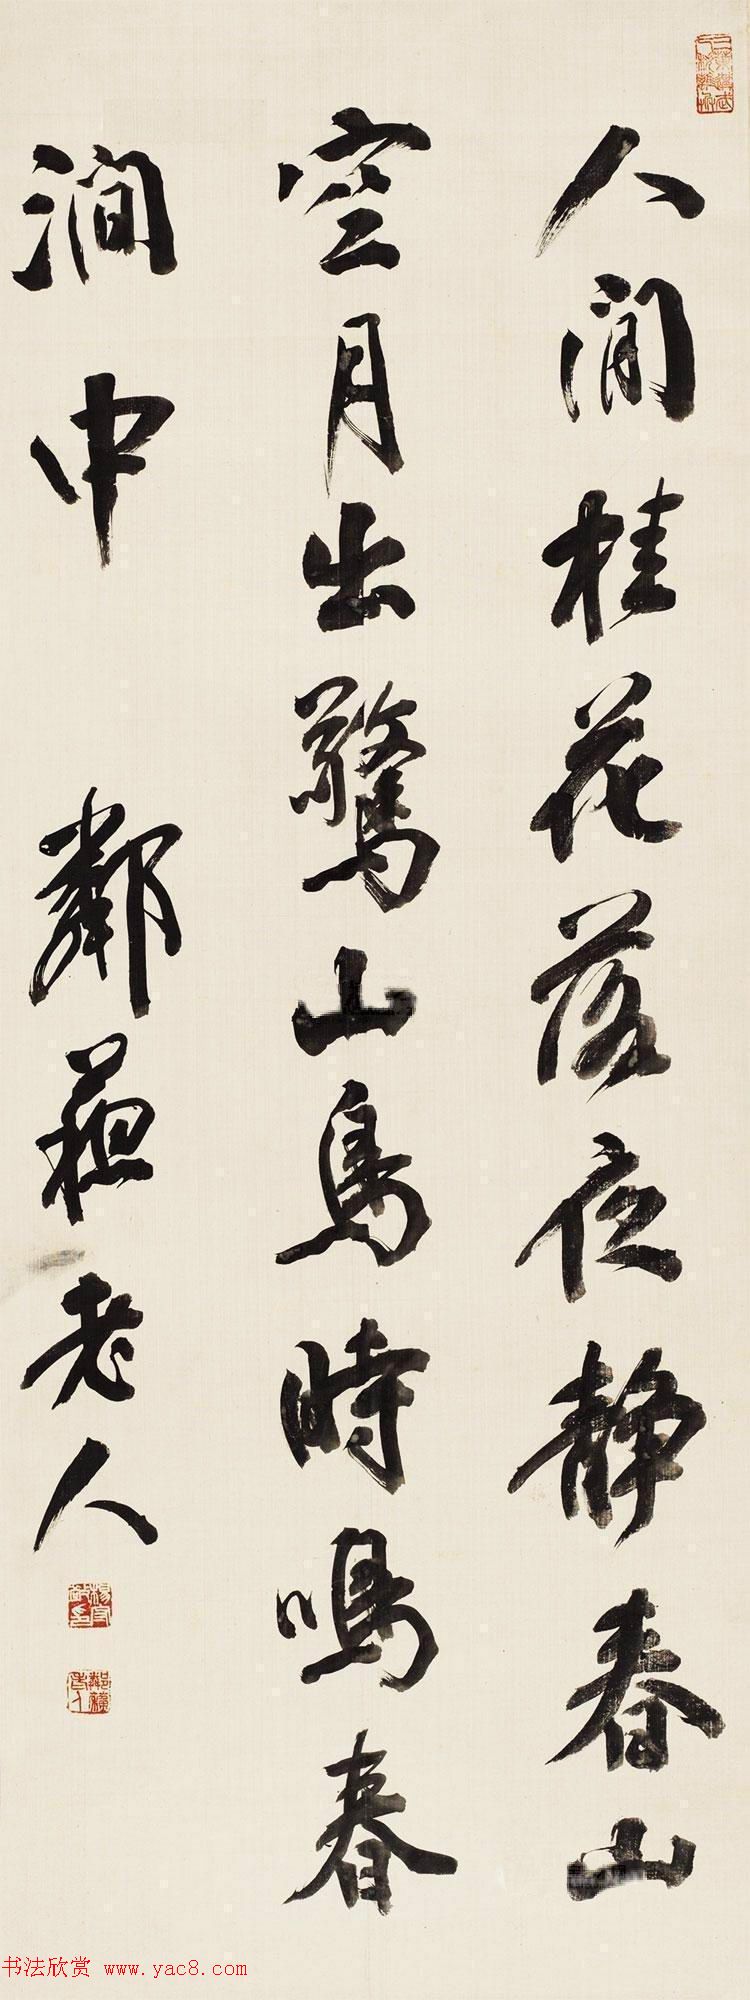 人間桂花落夜静春山
空月出驚山鳥時鳴春
澗中
鄰蘇老人
书法欣赏 www.yac8.com